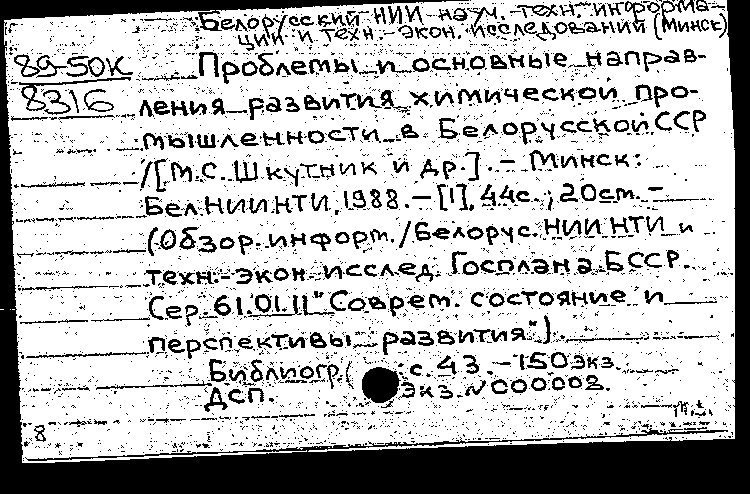 Белорусский НИИ науч.-техн. информа-
ции и техн.-экон. исследований (Минск)
89-50К Проблемы и основные направ-
8316 ления развития химической про-
мышленности в Белорусской ССР
/[М.С. Шкутник и др.]. – Минск:
БелНИИНТИ, 1988. – [1], 44с.; 20см. –
(Обзор. информ. / Белорус. НИИНТИ и
техн.-экон. исслед. Госплана БССР.
Сер. 61.01.11 "Соврем. состояние и
перспективы развития").
Библиогр.: с. 43. – 150экз.
ДСП. Экз. N000002.
8